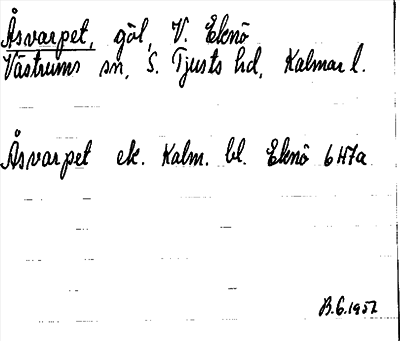 Åsvarpet, göl, V. Eknö
Västrums sn, S. Tjusts hd, Kalmar l.
Åsvarpet ek. Kalm. bl. Eknö 6H7a
B.G. 1952